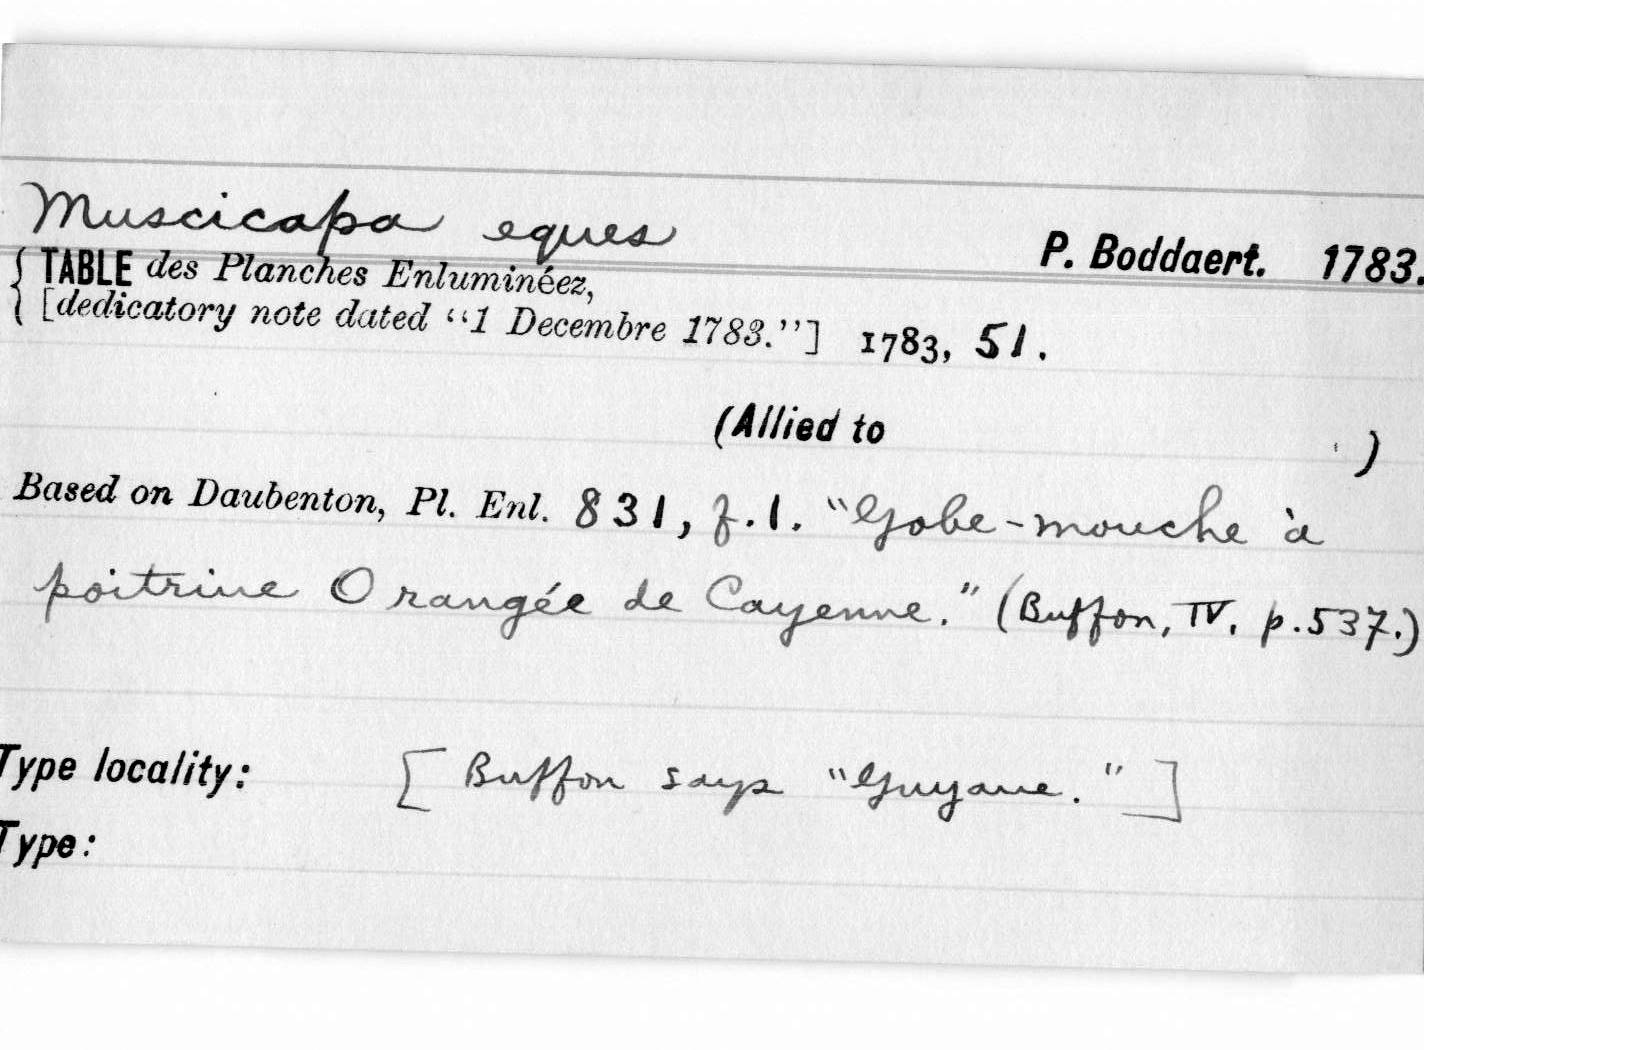 Muscicapa eques
P. Boddaert. 1783.
{ TABLE des Planches Enluminéez,
[dedicatory note dated “1 Decembre 1783.”] 1783, 51.
(Allied to )
Based on Daubenton, Pl. Enl. 831, f.1. “Gobe-mouche à
poitrine Orangée de Cayenne.” (Buffon, IV, p.537.)
Type locality: [Buffon says “Guyane.”]
Type: